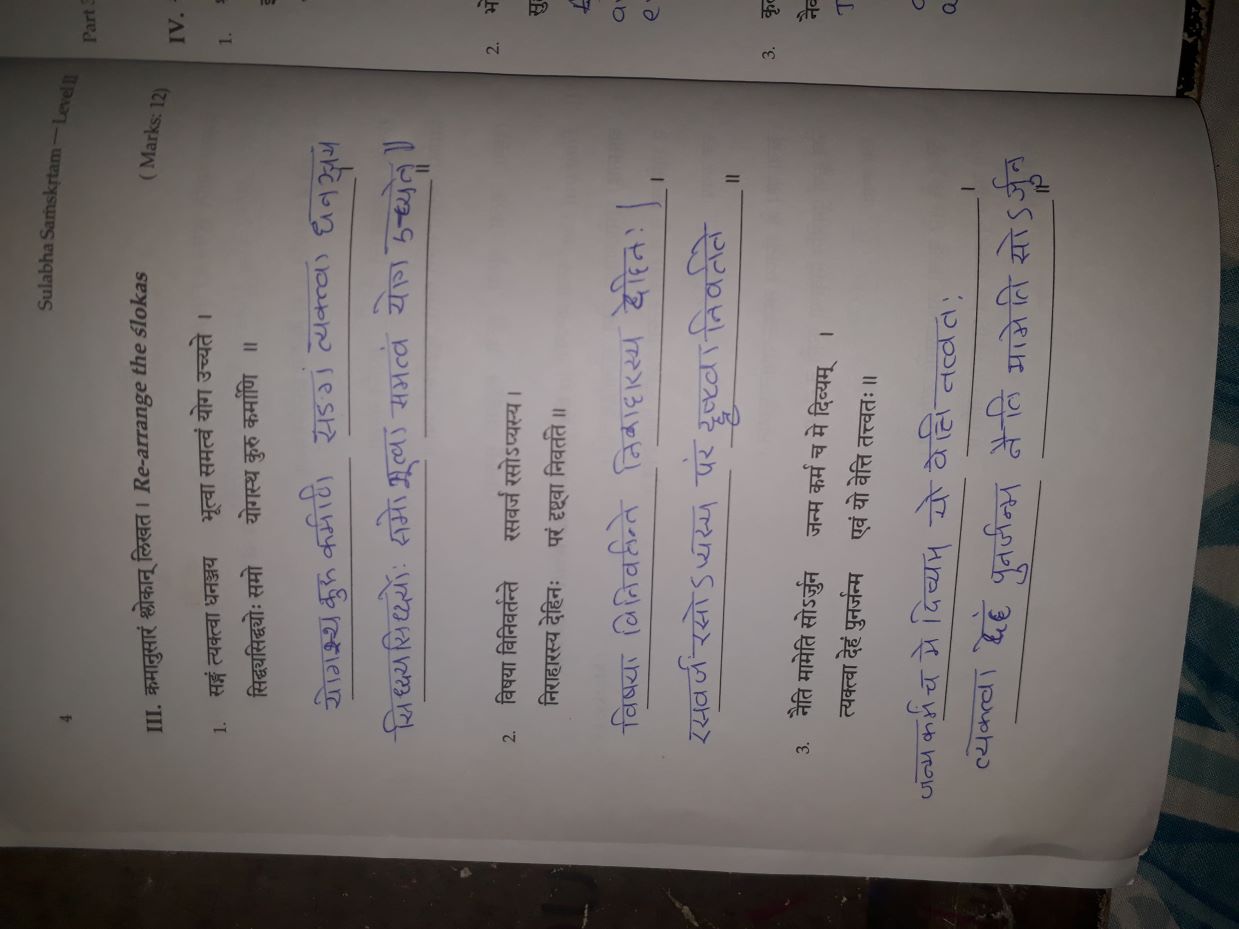 4
Sulabha Saṁskṛtam — Level II
III. क्रमानुसारं श्लोकान् लिखत । Re-arrange the ślokas ( Marks: 12)
1. सङ्गं त्यक्त्वा धनञ्जय भूत्वा समत्वं योग उच्यते ।
सिद्ध्यसिद्ध्योः समो योगस्थ कुरु कर्माणि ॥
योगस्थ कुरु कर्माणि सङगं त्यक्त्वा धनञ्जय
सिध्द्यसिध्द्योः समो भूत्वा समत्वं योग उच्यते॥
॥
2. विषया विनिवर्तन्ते रसवर्ज रसोऽप्यस्य ।
निराहारस्य देहिनः परं दृष्ट्वा निवर्तते ॥
विषया विनिवर्तन्ते देहिनः | ।
रसवर्ज रसोऽप्यस्य परं निवर्तते ॥
3. नैति मामेति सोऽर्जुन जन्म कर्म च मे दिव्यम् ।
त्यक्त्वा देहं पुनर्जन्म एवं यो वेत्ति तत्त्वतः ॥
जन्म कर्म च मे दिव्यम यो वेत्ति तत्वतः ।
त्यक्त्वा देहं पुनर्जन्म नैति मामेति सोऽर्जुन ॥
Part 3
IV.
1.
2. भो
सु
3. कृत
नैव